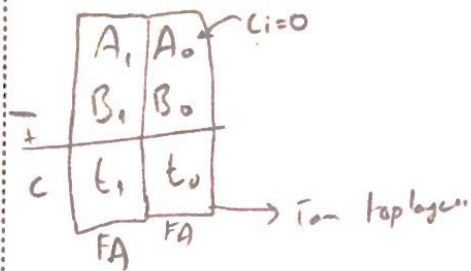 Ci=0
A₁ A₀
B₁ B₀
+
C t₁ t₀
Tam toplayıcı
FA FA